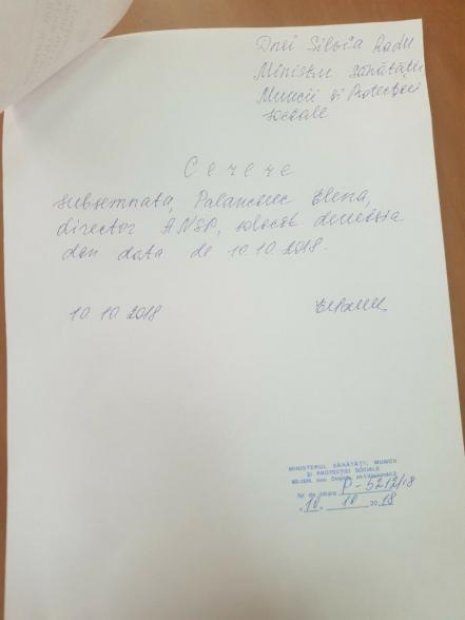 Dnei Silvia Radu
Ministru Sănătății
Muncii și Protecției
Sociale
Cerere
Subsemnata, Palancicec Elena,
director ANSP, solicit demisia
din data de 10.10.2018.
10.10.2018
MINISTERUL SĂNĂTĂȚII, MUNCII
ȘI PROTECȚIEI SOCIALE
P-5212/18
"10" 10 2018